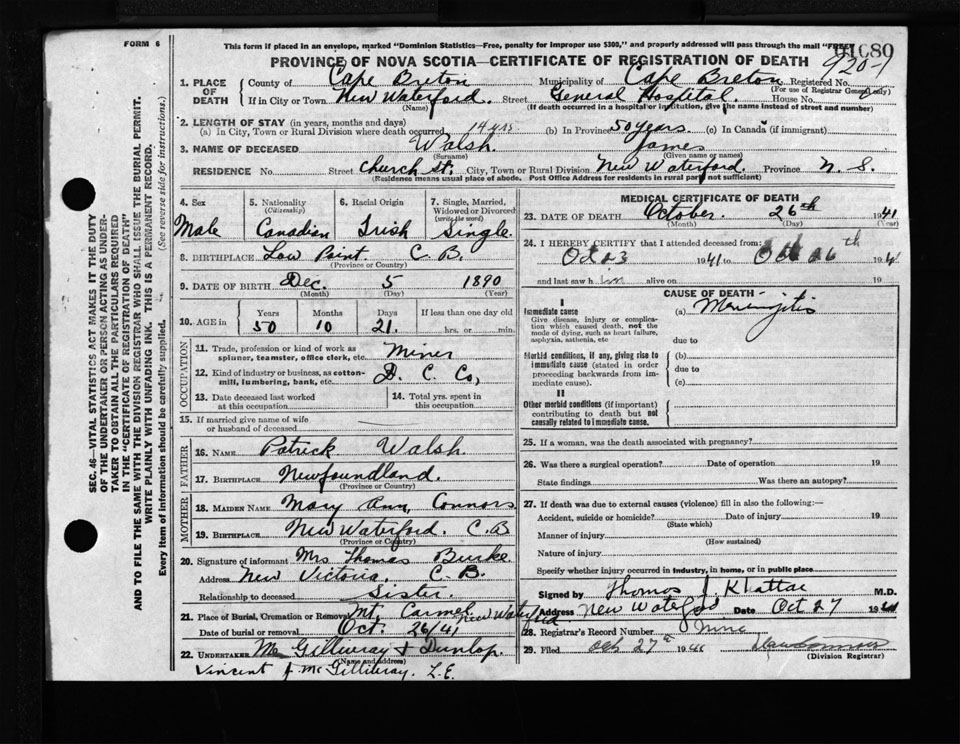 FORM 6
This form if placed in an envelope, marked "Dominion Statistics—Free, penalty for improper use $300," and properly addressed will pass through the mail "FREE"
PROVINCE OF NOVA SCOTIA—CERTIFICATE OF REGISTRATION OF DEATH
920-1
1. PLACE OF DEATH
County of Cape Breton Municipality of Cape Breton Registered No.
(For use of Registrar General only)
If in City or Town New Waterford. Street General Hospital. House No.
(Name) (If death occurred in a hospital or institution, give its name instead of street and number)
2. LENGTH OF STAY (in years, months and days)
(a) In City, Town or Rural Division where death occurred 14 yrs. (b) In Province 50 years. (c) In Canada (if immigrant)
3. NAME OF DECEASED Walsh. James
(Surname) (Given name or names)
RESIDENCE No. Street Church St. City, Town or Rural Division New Waterford. Province N. S.
(Residence means usual place of abode. Post Office Address for residents in rural part not sufficient)
4. Sex
Male
5. Nationality
(Citizenship)
Canadian
6. Racial Origin
Irish
7. Single, Married, Widowed or Divorced
(write the word)
Single.
8. BIRTHPLACE Low Point. C. B.
(Province or Country)
9. DATE OF BIRTH Dec. 5 1890
(Month) (Day) (Year)
10. AGE in
Years Months Days If less than one day old
50 10 21. hrs. or min.
OCCUPATION
11. Trade, profession or kind of work as spinner, teamster, office clerk, etc. Miner
12. Kind of industry or business, as cotton-mill, lumbering, bank, etc. D. C. Co,
13. Date deceased last worked at this occupation
14. Total yrs. spent in this occupation
15. If married give name of wife or husband of deceased
FATHER
16. NAME Patrick Walsh.
17. BIRTHPLACE Newfoundland.
(Province or Country)
MOTHER
18. MAIDEN NAME Mary Ann Connors
19. BIRTHPLACE New Waterford. C. B
(Province or Country)
20. Signature of informant Mrs Thomas Burke.
Address New Victoria, C. B.
Relationship to deceased Sister.
21. Place of Burial, Cremation or Removal Mt. Carmel New Waterford
Date of burial or removal Oct. 26/41
22. UNDERTAKER McGillivray & Dunlop.
(Name and address)
Vincent J. McGillivray. L.E.
MEDICAL CERTIFICATE OF DEATH
23. DATE OF DEATH October. 26th 1941
(Month) (Day) (Year)
24. I HEREBY CERTIFY that I attended deceased from:
Oct 23 1941 to Oct 26th 1941
and last saw him alive on 19
CAUSE OF DEATH
I
Immediate cause
Give disease, injury or complication which caused death, not the mode of dying, such as heart failure, asphyxia, asthenia, etc
(a) Meningitis
due to
Morbid conditions, if any, giving rise to immediate cause (stated in order proceeding backwards from immediate cause).
(b)
due to
(c)
II
Other morbid conditions (if important) contributing to death but not causally related to immediate cause.
25. If a woman, was the death associated with pregnancy?
26. Was there a surgical operation? Date of operation 19
State findings Was there an autopsy?
27. If death was due to external causes (violence) fill in also the following:—
Accident, suicide or homicide? Date of injury 19
(State which)
Manner of injury
(How sustained)
Nature of injury
Specify whether injury occurred in industry, in home, or in public place
Signed by Thomas J Khattar M.D.
Address New Waterford Date Oct 27 1941
28. Registrar's Record Number Nine
29. Filed Oct 27th 1941
(Division Registrar)
SEC. 46—VITAL STATISTICS ACT MAKES IT THE DUTY
OF THE UNDERTAKER OR PERSON ACTING AS UNDER-
TAKER TO OBTAIN ALL THE PARTICULARS REQUIRED
IN THE "CERTIFICATE OF REGISTRATION OF DEATH"
AND TO FILE THE SAME WITH THE DIVISION REGISTRAR WHO SHALL ISSUE THE BURIAL PERMIT.
WRITE PLAINLY WITH UNFADING INK. THIS IS A PERMANENT RECORD.
Every item of information should be carefully supplied. (See reverse side for instructions.)